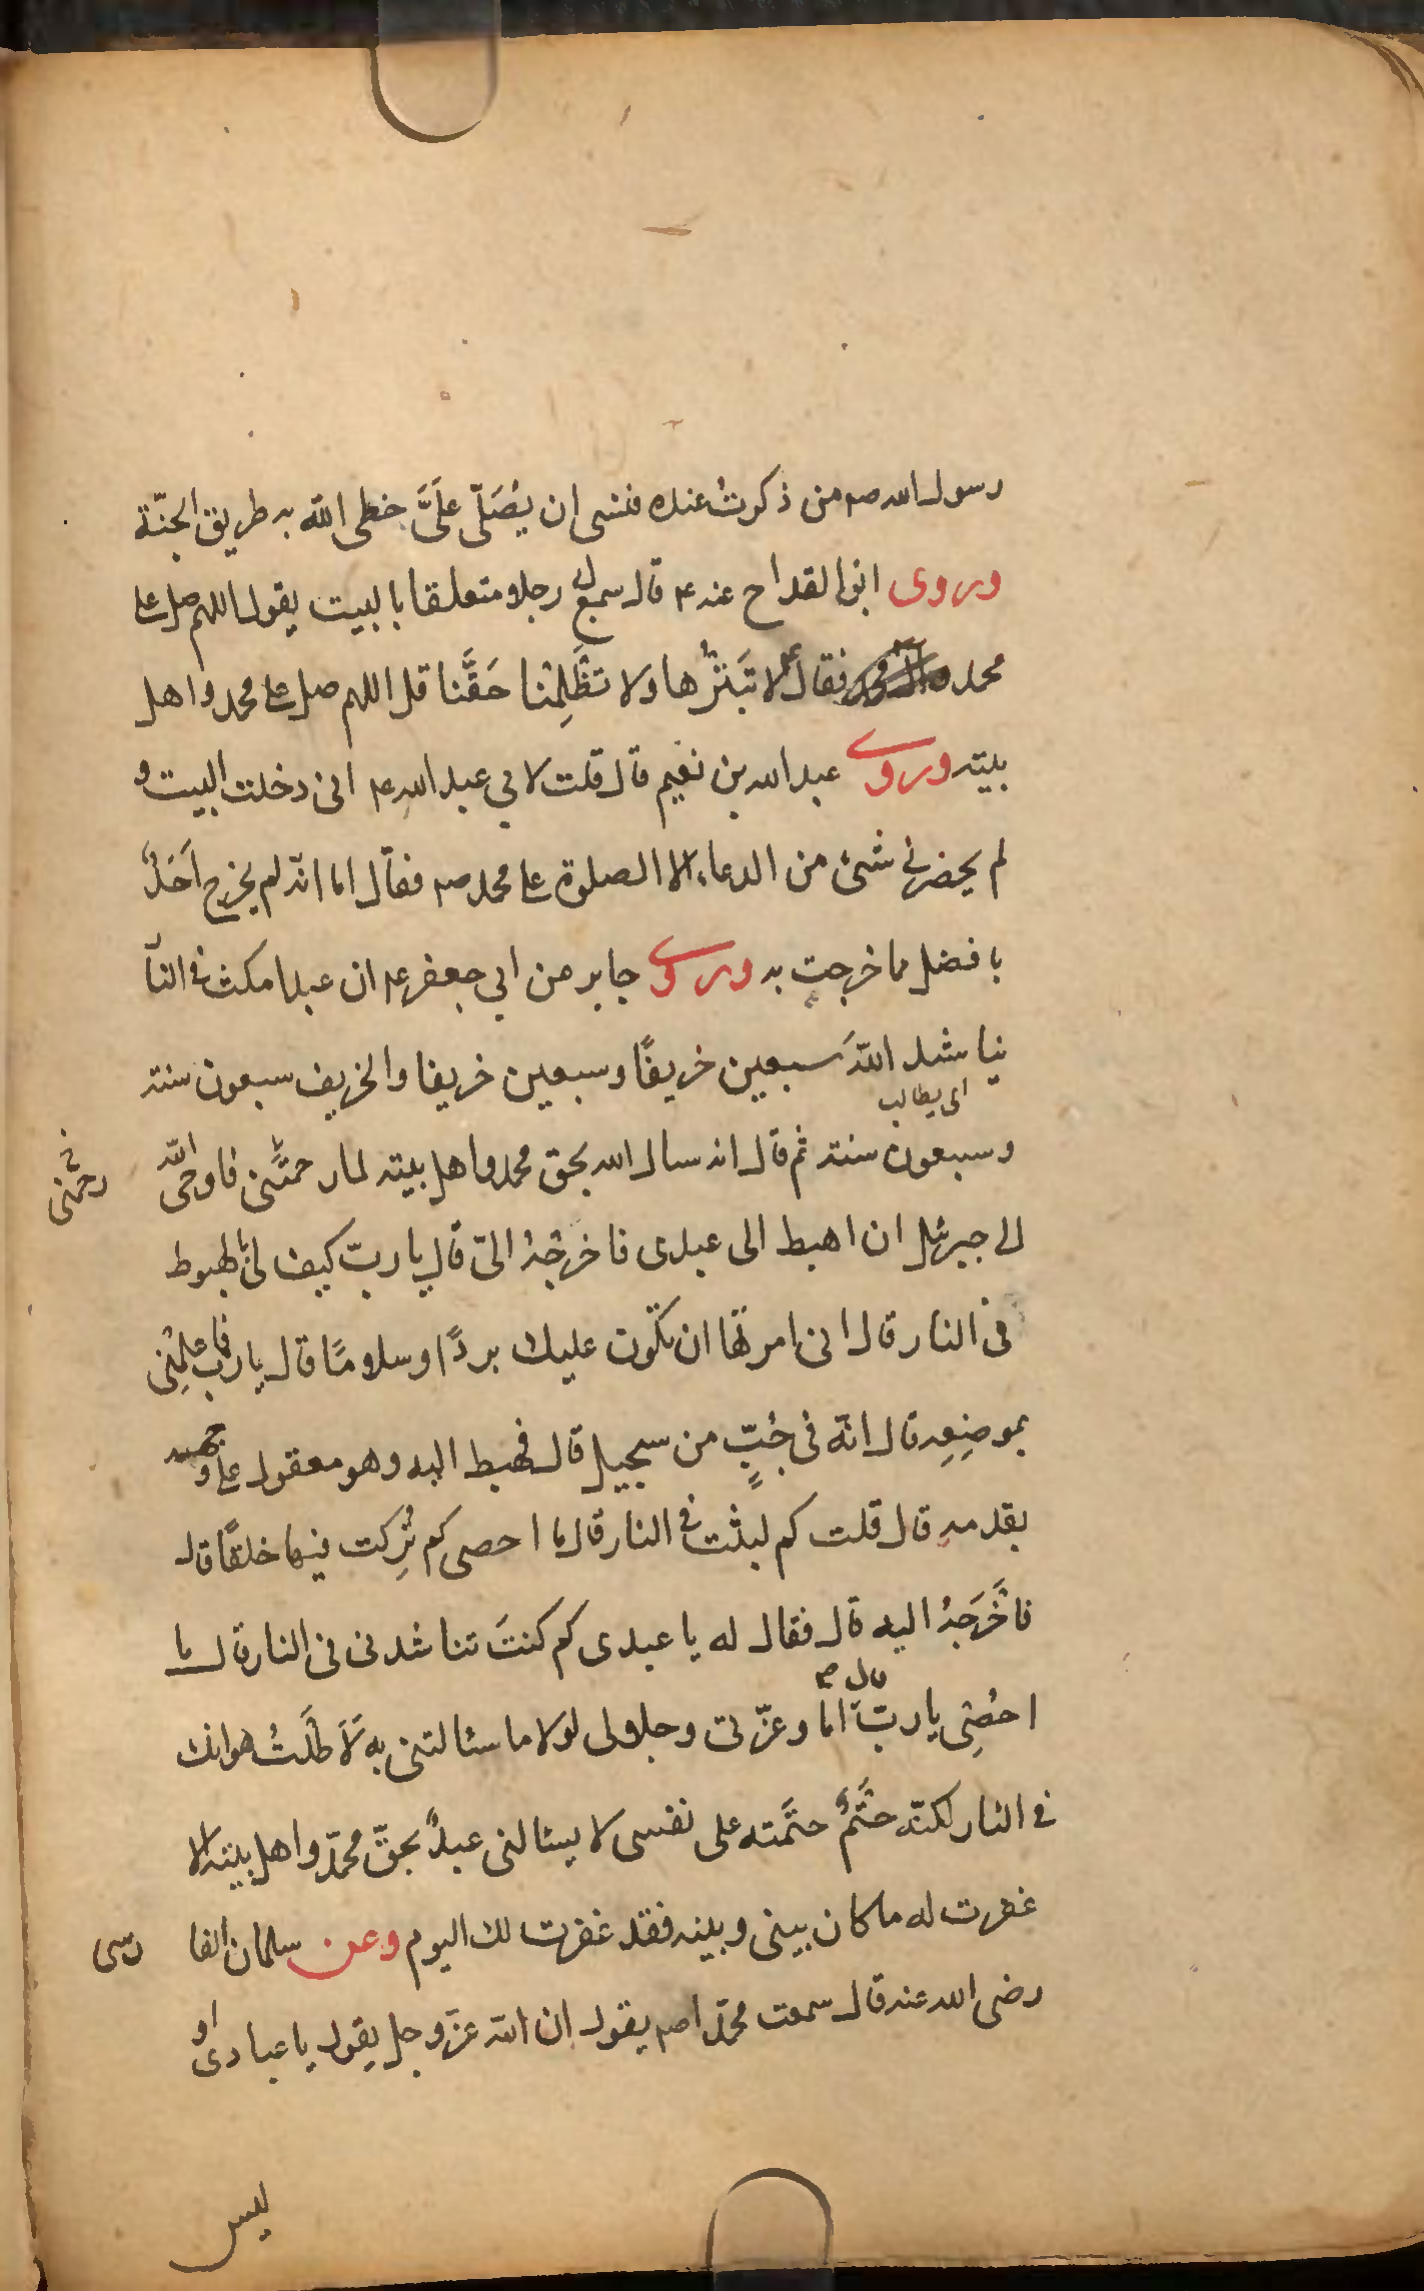 رسول الله صم من ذكرتُ عنده فنسى ان يُصَلّى عَلَىَّ خطى الله به طريق الجنّة
وروى ابن القداح عنه ع قال سمع ابى رجلا متعلقا بالبيت يقول اللهم صل على
محمد فقال ع لا تَبتُرْها ولا تظَّلِمْنا حَقَّنا قل اللهم صل على محمد واهل
بيته وروى عبد الله بن نعيم قال قلت لابي عبد الله ع انى دخلت البيت و
لم يحضرنى شئ من الدعاء الا الصلوة على محمد صم فقال اما انّه لم يخرج اَحَدٌ
بافضل مما خرجت به وروى جابر عن ابي جعفر ع ان عبدا مكث فى النا
يناشد اللهَ سبعين خريفًا وسبعين خريفا والخريف سبعون سنة
اى يطالب
وسبعون سنة ثم قال انه سال الله بحق محمد واهل بيته لما رحمتَنى فاوحى الله
رحمتنى
الى جبرئيل ان اهبط الى عبدى فاخرِجْهُ الىّ قال يا ربّ كيف لى بالهبوط
فى النار قال انى امرتها ان تكون عليك بردًا وسلامًا قال يا رب فاعلِمْنى
بموضِعِه قال انه فى جُبٍّ من سجيل قال فهبط اليه وهو معقول على وجهه
بقدمه قال قلت كم لبثت فى النار قال ما احصى كم تُرِكت فيها خلقًا قال
فاَخْرَجَهُ اليه قال فقال له يا عبدى كم كنتَ تناشدنى فى النار قال ما
احصِى يا ربّ قال اما وعزّتى وجلالى لولا ما سئالتنى به لَاَطَلْتُ هوانك
فى النار لكنّه حَتْمٌ حتَّمته على نفسى لا يسئالنى عبدٌ بحقّ محمّد واهل بيته الا
غفرت له ما كان بينى وبينه فقد غفرت لك اليوم وعن سلمان الفا رسى
رضى الله عنه قال سمعت محمّدا صم يقول ان الله عزّ وجل يقول يا عبادى او
ليس